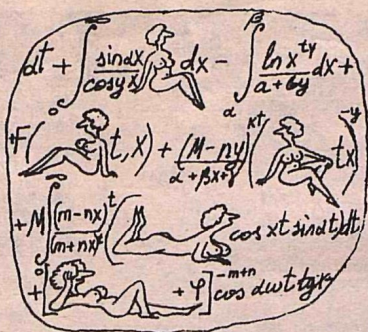 dt + ∫ sinαx/cosyx dx -
∫ ln x^ty/a+by dx+
+F( t, x) + (M-ny)/α+βx+γ ( tx)
+M∫ (m-nx)/(m+nx) ( cos xt sinαt)dt
+[ + φ]^-m+n cos αωt tgx